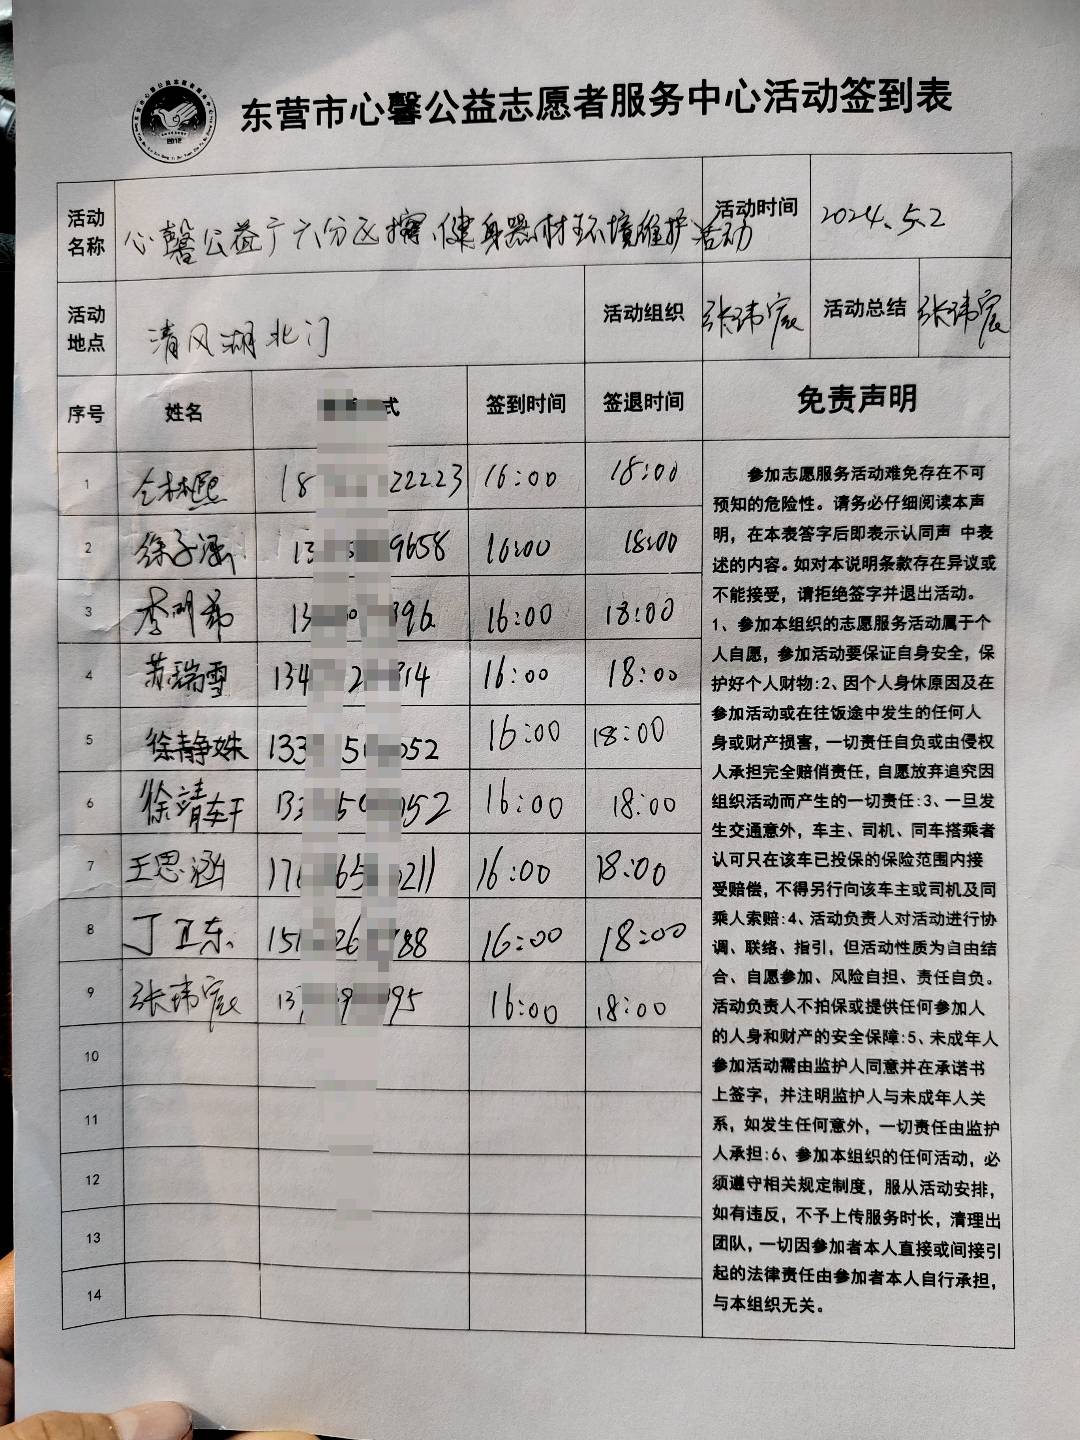 东营市心馨公益志愿者服务中心活动签到表
2012
活动名称 心馨公益广六分区擦健身器材环境维护活动 活动时间 2024.5.2
活动地点 清风湖北门 活动组织 张玮宸 活动总结 张玮宸
序号 姓名 式 签到时间 签退时间 免责声明
1 仝林熙 18 22223 16:00 18:00
2 徐子涵 13 9658 16:00 18:00
3 李明 13 396 16:00 18:00
4 苏瑞雪 134 2 314 16:00 18:00
5 徐静姝 133 5 052 16:00 18:00
6 徐靖轩 133 50 052 16:00 18:00
7 王思涵 176 65 211 16:00 18:00
8 丁卫东 151 26 788 16:00 18:00
9 张玮宸 13 9 95 16:00 18:00
10
11
12
13
14
参加志愿服务活动难免存在不可
预知的危险性。请务必仔细阅读本声
明，在本表答字后即表示认同声 中表
述的内容。如对本说明条款存在异议或
不能接受，请拒绝签字并退出活动。
1、参加本组织的志愿服务活动属于个
人自愿，参加活动要保证自身安全，保
护好个人财物:2、因个人身休原因及在
参加活动或在往饭途中发生的任何人
身或财产损害，一切责任自负或由侵权
人承担完全赔俏责任，自愿放弃追究因
组织活动而产生的一切责任:3、一旦发
生交通意外，车主、司机、同车搭乘者
认可只在该车已投保的保险范围内接
受赔偿，不得另行向该车主或司机及同
乘人索赔:4、活动负责人对活动进行协
调、联络、指引，但活动性质为自由结
合、自愿参加、风险自担、责任自负。
活动负责人不拍保或提供任何参加人
的人身和财产的安全保障:5、未成年人
参加活动需由监护人同意并在承诺书
上签字，并注明监护人与未成年人关
系，如发生任何意外，一切责任由监护
人承担:6、参加本组织的任何活动，必
须遵守相关规定制度，服从活动安排，
如有违反，不予上传服务时长，清理出
团队，一切因参加者本人直接或间接引
起的法律责任由参加者本人自行承担，
与本组织无关。